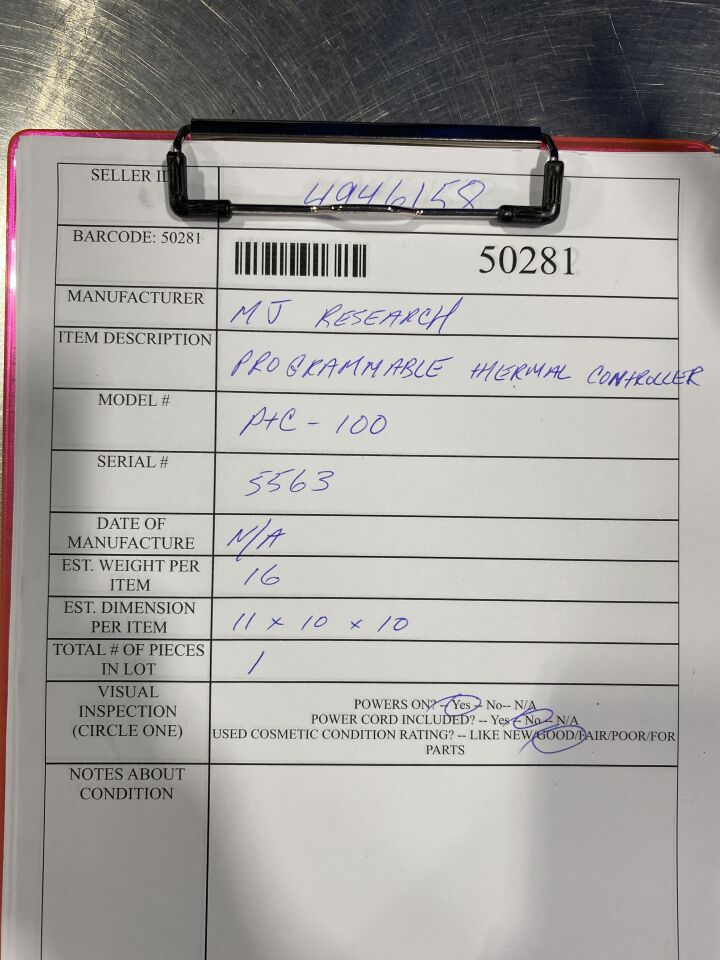 SELLER ID 4946158
BARCODE: 50281 50281
MANUFACTURER MJ RESEARCH
ITEM DESCRIPTION PROGRAMMABLE THERMAL CONTROLLER
MODEL # PtC - 100
SERIAL # 5563
DATE OF
MANUFACTURE N/A
EST. WEIGHT PER
ITEM 16
EST. DIMENSION
PER ITEM 11 x 10 x 10
TOTAL # OF PIECES
IN LOT 1
VISUAL
INSPECTION
(CIRCLE ONE)
POWERS ON? -- Yes -- No-- N/A
POWER CORD INCLUDED? -- Yes -- No -- N/A
USED COSMETIC CONDITION RATING? -- LIKE NEW/GOOD/FAIR/POOR/FOR
PARTS
NOTES ABOUT
CONDITION